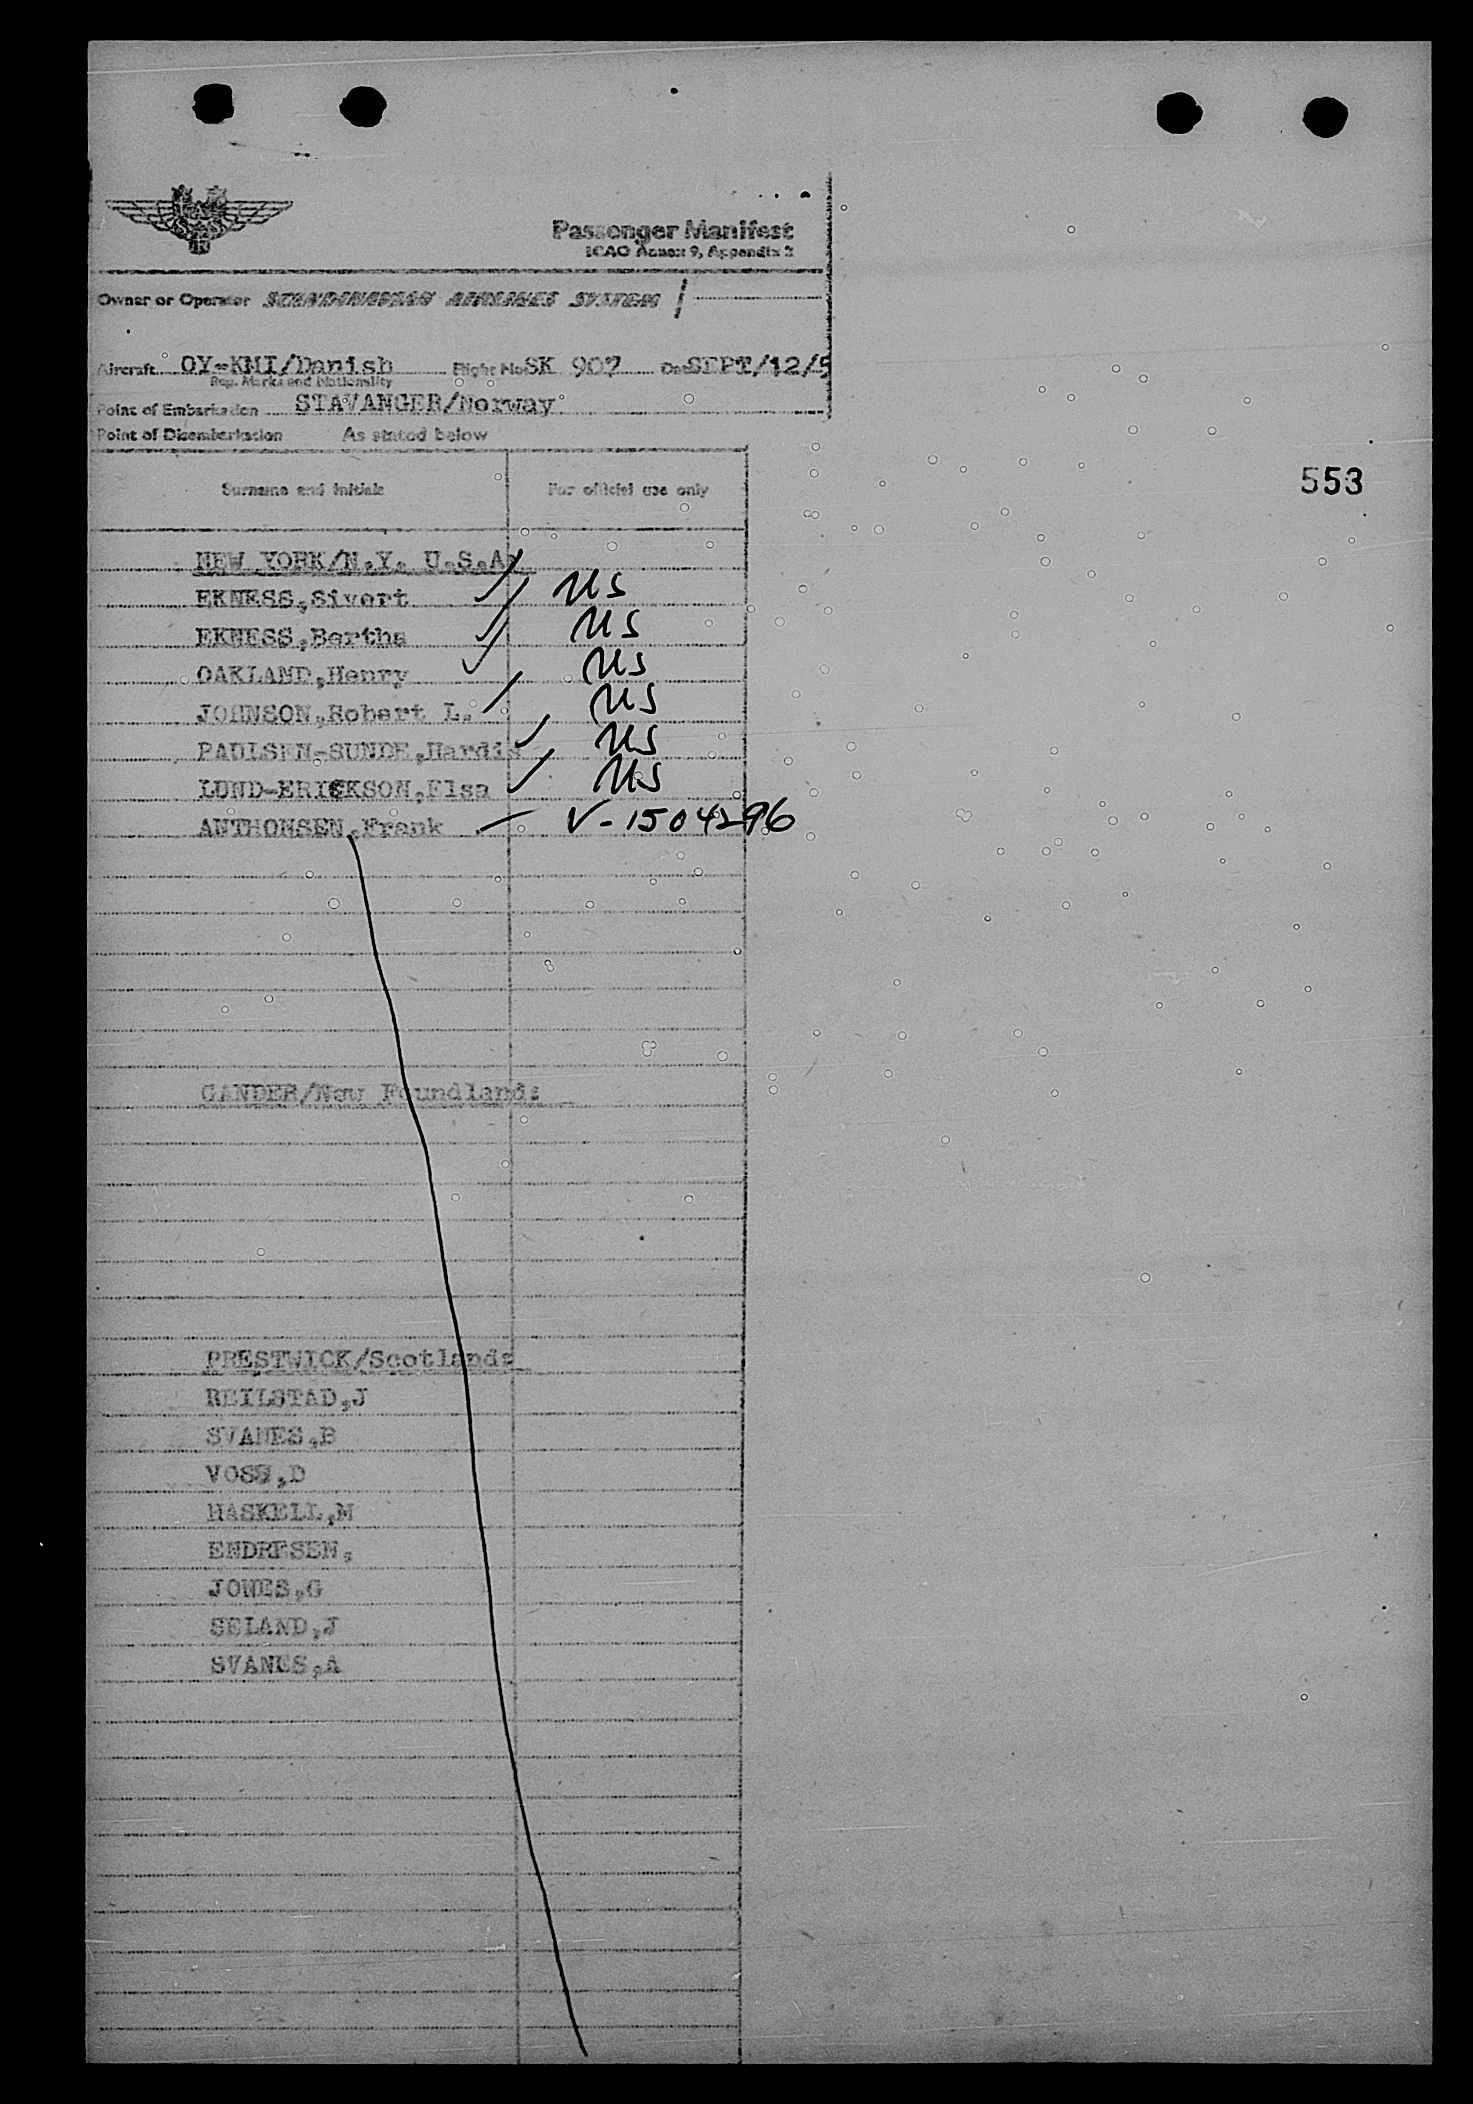 Passenger Manifest
ICAO Annex 9, Appendix 2
Owner or Operator SCANDINAVIAN AIRLINES SYSTEM
Aircraft OY-KMI/Danish Flight No SK 907 Date SEPT/12/5
Reg. Marks and Nationality
Point of Embarkation STAVANGER/Norway
Point of Disembarkation As stated below
Surname and initials For official use only
553
NEW YORK/N.Y. U.S.A.
EKNESS,Sivert US
EKNESS,Bertha US
OAKLAND,Henry US
JOHNSON,Robert L. US
PAULSEN-SUNDE,Hardis US
LUND-ERICKSON,Elsa US
ANTHONSEN,Frank V-1504296
GANDER/New Foundland:
PRESTWICK/Scotland:
REILSTAD,J
SVANES,B
VOSS,D
HASKELL,M
ENDRESEN,
JONES,G
SELAND,J
SVANES,A